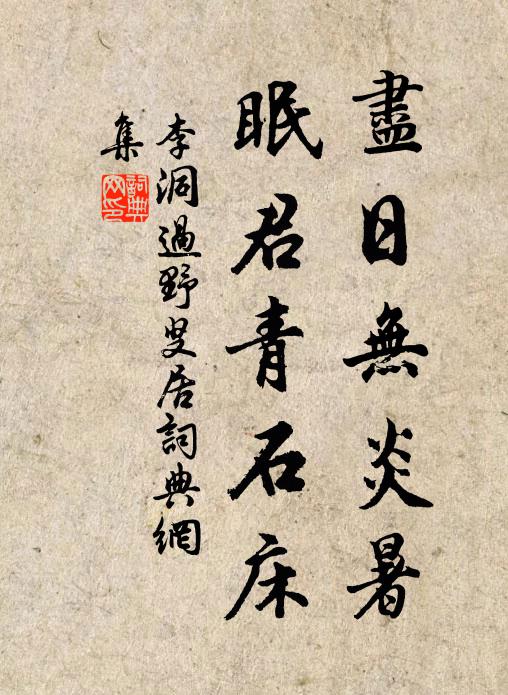 盡日無炎暑
眠君青石床
李洞過野叟居詞典網
集
詞典
网印